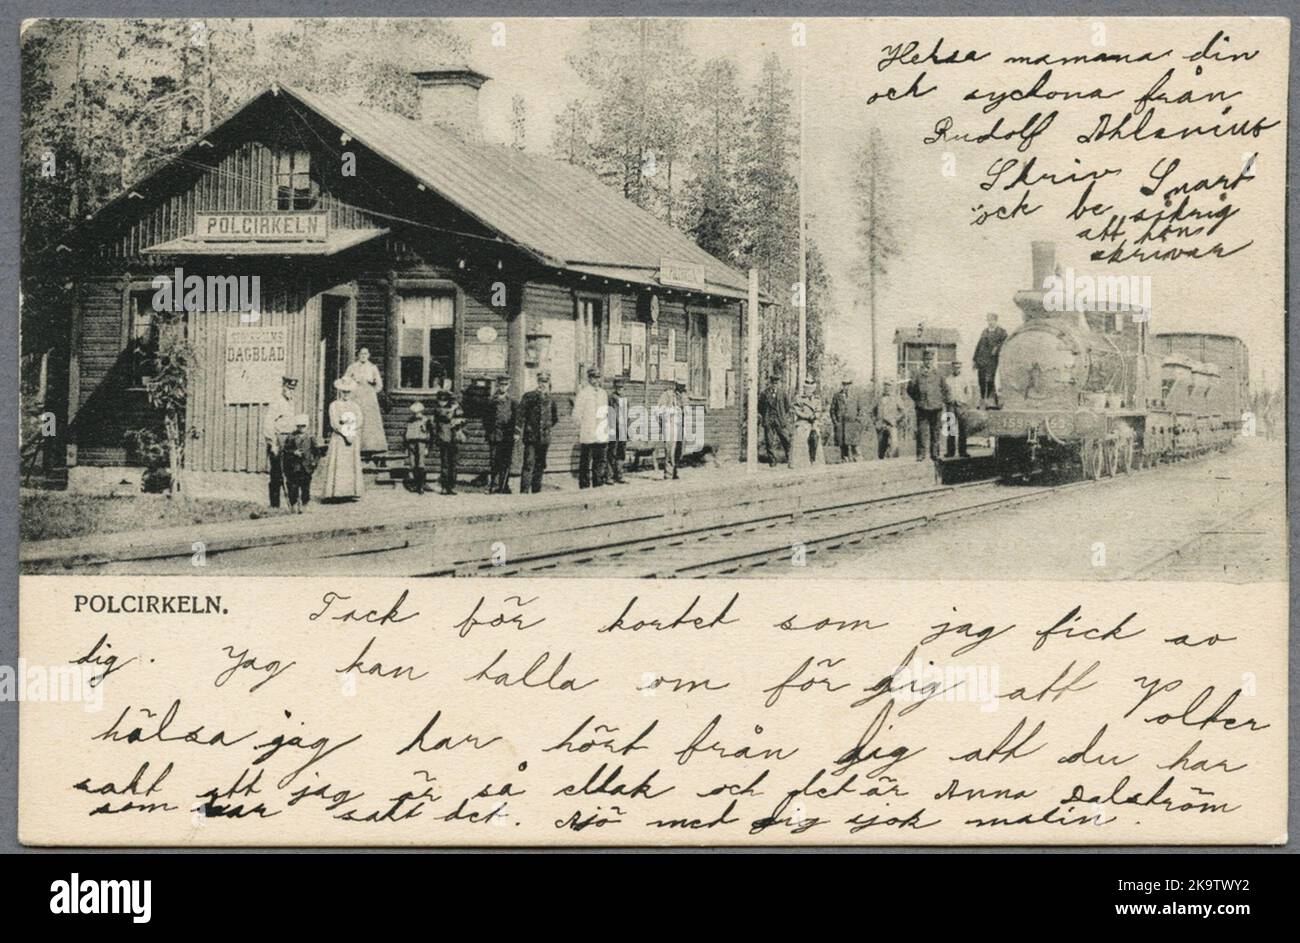 Helsa mamana din
och syckona från
Rudolf Ahlanius
Skriv Snart
ock be sökrig
att hon
skrivar
POLCIRKELN
STOCKHOLMS
DAGBLAD
POLCIRKELN.
Tack för kortet som jag fick av
dig. Jag kan talla om för dig att Wolter
hälsa jag har hört från dig att du har
sakt att jag är så ellak och det är Anna Dalström
som har sakt det. Ajö med dig sjok malin.
alamy
Image ID: 2K9TWY2
www.alamy.com